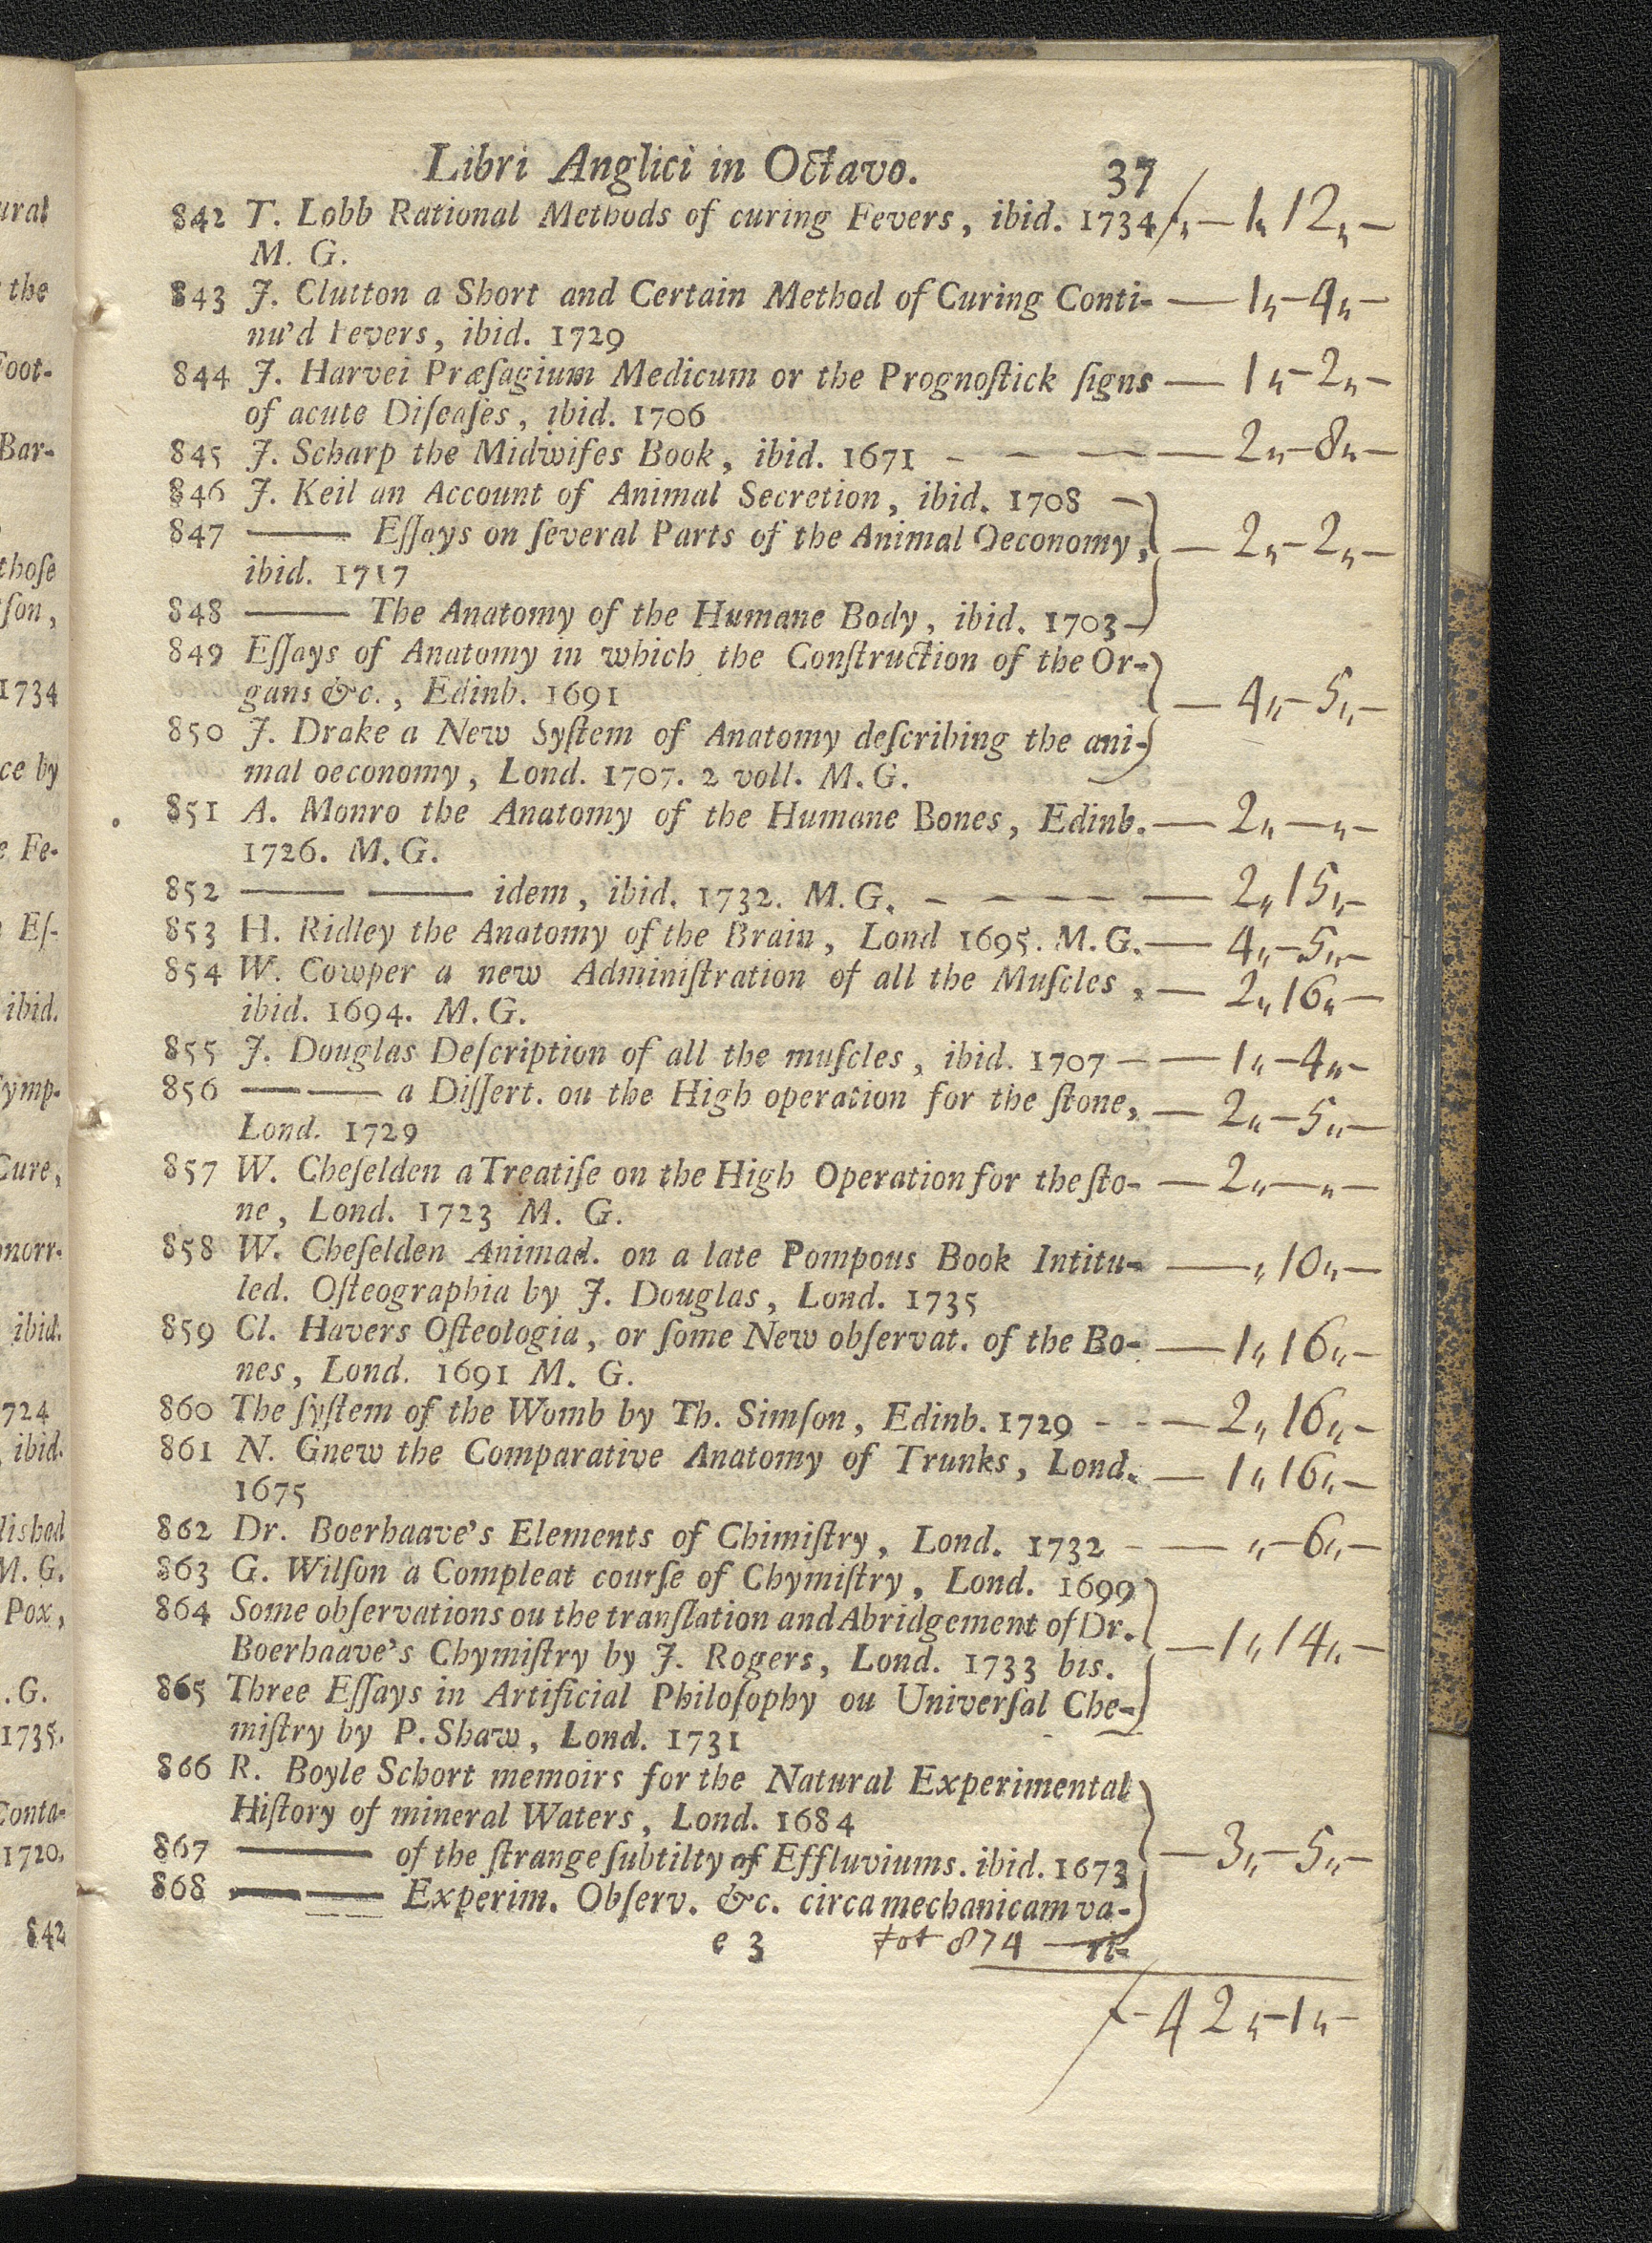 Libri Anglici in Octavo. 37
842 T. Lobb Rational Methods of curing Fevers, ibid. 1734 — 1,, 12,, —
M. G.
843 J. Clutton a Short and Certain Method of Curing Conti- — 1,, — 4,, —
nu'd Fevers, ibid. 1729
844 J. Harvei Præsagium Medicum or the Prognoſtick ſigns — 1,, — 2,, —
of acute Diſeaſes, ibid. 1706
845 J. Scharp the Midwifes Book, ibid. 1671 — — — — 2,, — 8,, —
846 J. Keil an Account of Animal Secretion, ibid. 1708 —
847 —— Eſſays on ſeveral Parts of the Animal Oeconomy, — 2,, — 2,, —
ibid. 1717
848 —— The Anatomy of the Humane Body, ibid. 1703 —
849 Eſſays of Anatomy in which the Conſtruction of the Or-
gans &c., Edinb. 1691 — 4,, — 5,, —
850 J. Drake a New Syſtem of Anatomy deſcribing the ani-
mal oeconomy, Lond. 1707. 2 voll. M. G.
851 A. Monro the Anatomy of the Humane Bones, Edinb. — 2,, — ,, —
1726. M. G.
852 —— —— idem, ibid. 1732. M. G. — — — — — 2,, 15,, —
853 H. Ridley the Anatomy of the Brain, Lond 1695. M. G. — 4,, — 5,, —
854 W. Cowper a new Adminiſtration of all the Muſcles, — 2,, 16,, —
ibid. 1694. M. G.
855 J. Douglas Deſcription of all the muſcles, ibid. 1707 — — 1,, — 4,, —
856 —— a Diſſert. ou the High operation for the ſtone, — 2,, — 5,, —
Lond. 1729
857 W. Cheſelden a Treatiſe on the High Operation for the ſto- — 2,, — ,, —
ne, Lond. 1723 M. G.
858 W. Cheſelden Animad. on a late Pompous Book Intitu- — ,, 10,, —
led. Oſteographia by J. Douglas, Lond. 1735
859 Cl. Havers Oſteologia, or ſome New obſervat. of the Bo- — 1,, 16,, —
nes, Lond. 1691 M. G.
860 The ſyſtem of the Womb by Th. Simſon, Edinb. 1729 - - — 2,, 16,, —
861 N. Gnew the Comparative Anatomy of Trunks, Lond. — 1,, 16,, —
1675
862 Dr. Boerhaave's Elements of Chimiſtry, Lond. 1732 - — ,, — 6,, —
863 G. Wilſon a Compleat courſe of Chymiſtry, Lond. 1699
864 Some obſervations ou the tranſlation and Abridgement of Dr.
Boerhaave's Chymiſtry by J. Rogers, Lond. 1733 bis. — 1,, 14,, —
865 Three Eſſays in Artificial Philoſophy ou Univerſal Che-
miſtry by P. Shaw, Lond. 1731
866 R. Boyle Schort memoirs for the Natural Experimental
Hiſtory of mineral Waters, Lond. 1684
867 —— of the ſtrange ſubtilty of Effluviums. ibid. 1673 — 3,, — 5,, —
868 —— Experim. Obſerv. &c. circa mechanicam va-
e 3 tot 874 — ri-
f — 42,, — 1,, —
ural
the
Foot-
Bar-
thoſe
ſon,
1734
ce by
e Fe-
Eſ-
ibid.
Symp-
Cure,
onorr-
ibid.
1724
ibid.
liſhed
M. G.
Pox,
. G.
1735.
Conta-
1720.
842